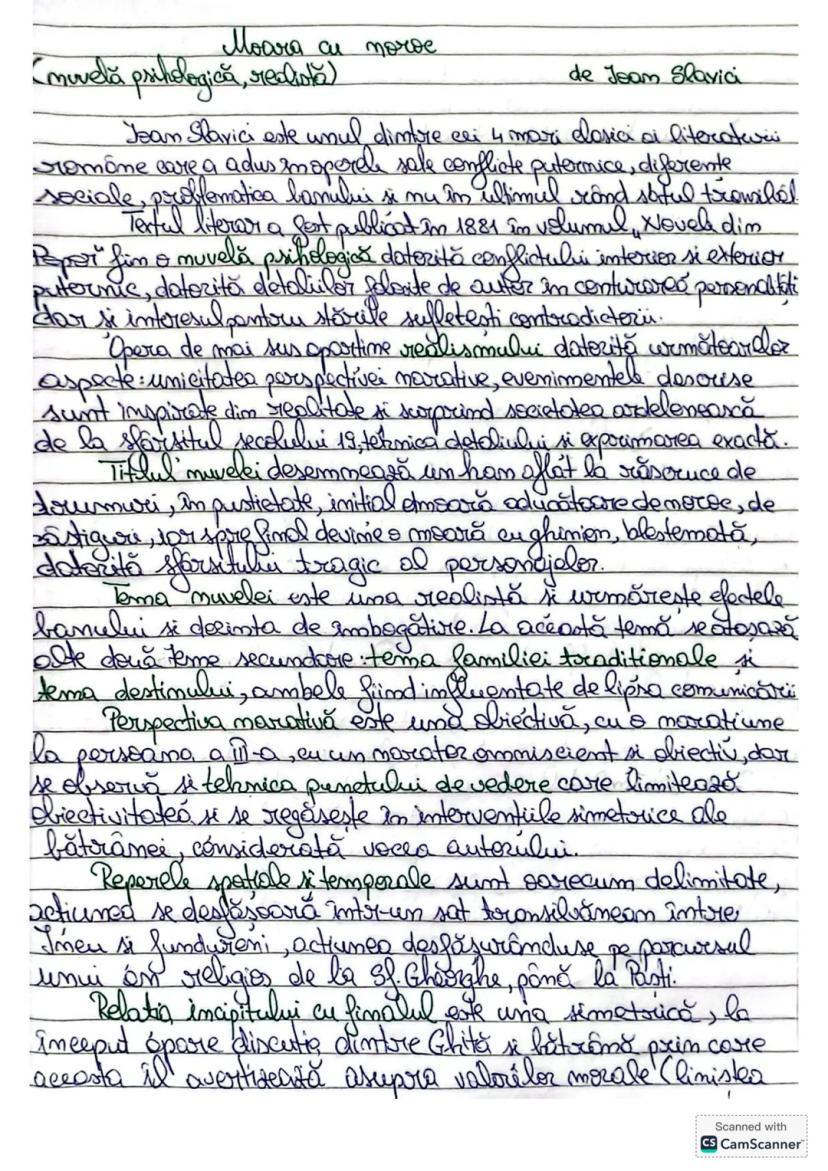 Moara cu noroc
(nuvelă psihologică, realistă) de Ioan Slavici
Ioan Slavici este unul dintre cei 4 mari clasici ai literaturii
române care a adus în operele sale conflicte puternice, diferențe
sociale, problematica banului și nu în ultimul rând satul
Textul literar a fost publicat în 1881 în volumul „Novele din
Popor" fiin o nuvelă psihologică datorită conflictului interior si exterior
puternic, datorită detaliilor folosite de autor în conturarea personalității
dar și interesul pentru stările sufletești contradictorii.
Opera de mai sus aparține realismului datorită următoarelor
aspecte: unicitatea perspectivei narative, evenimentele descrise
sunt inspirate din realitate si surprind societatea ardelenească
de la sfârsitul secolului 19, tehnica detaliului si exprimarea exactă.
Titlul nuvelei desemnează un han aflat la răscruce de
drumuri, în pustietate, initial o moară aducătoare de noroc, de
câstiguri, iar spre final devine o moară cu ghinion, blestemată,
datorită sfârsitului tragic al personajelor.
Tema nuvelei este una realistă si urmărește efectele
banului si dorinta de îmbogătire. La această temă se atașază
alte două teme secundare: tema familiei traditionale si
tema destinului, ambele fiind influentate de lipsa comunicării
Perspectiva narativă este una obiectivă, cu o naratiune
la persoana a III-a, cu un narator omniscient si obiectiv, dar
se observă si tehnica punctului de vedere care limitează
obiectivitatea si se regăsește în intervențiile simetrice ale
bătrânei, considerată vocea autorului.
Reperele spațiale si temporale sunt oarecum delimitate,
actiunea se desfășoară într-un sat transilvănean între
Ineu si Fundureni, actiunea desfăsurânduse pe parcursul
unui an religios de la Sf. Gheorghe, până la Paști.
Relatia incipitului cu finalul este una simetrică, la
început apare discutia dintre Ghită si bătrână prin care
aceasta îl avertizează asupra valorilor morale (linistea
Scanned with
CS CamScanner